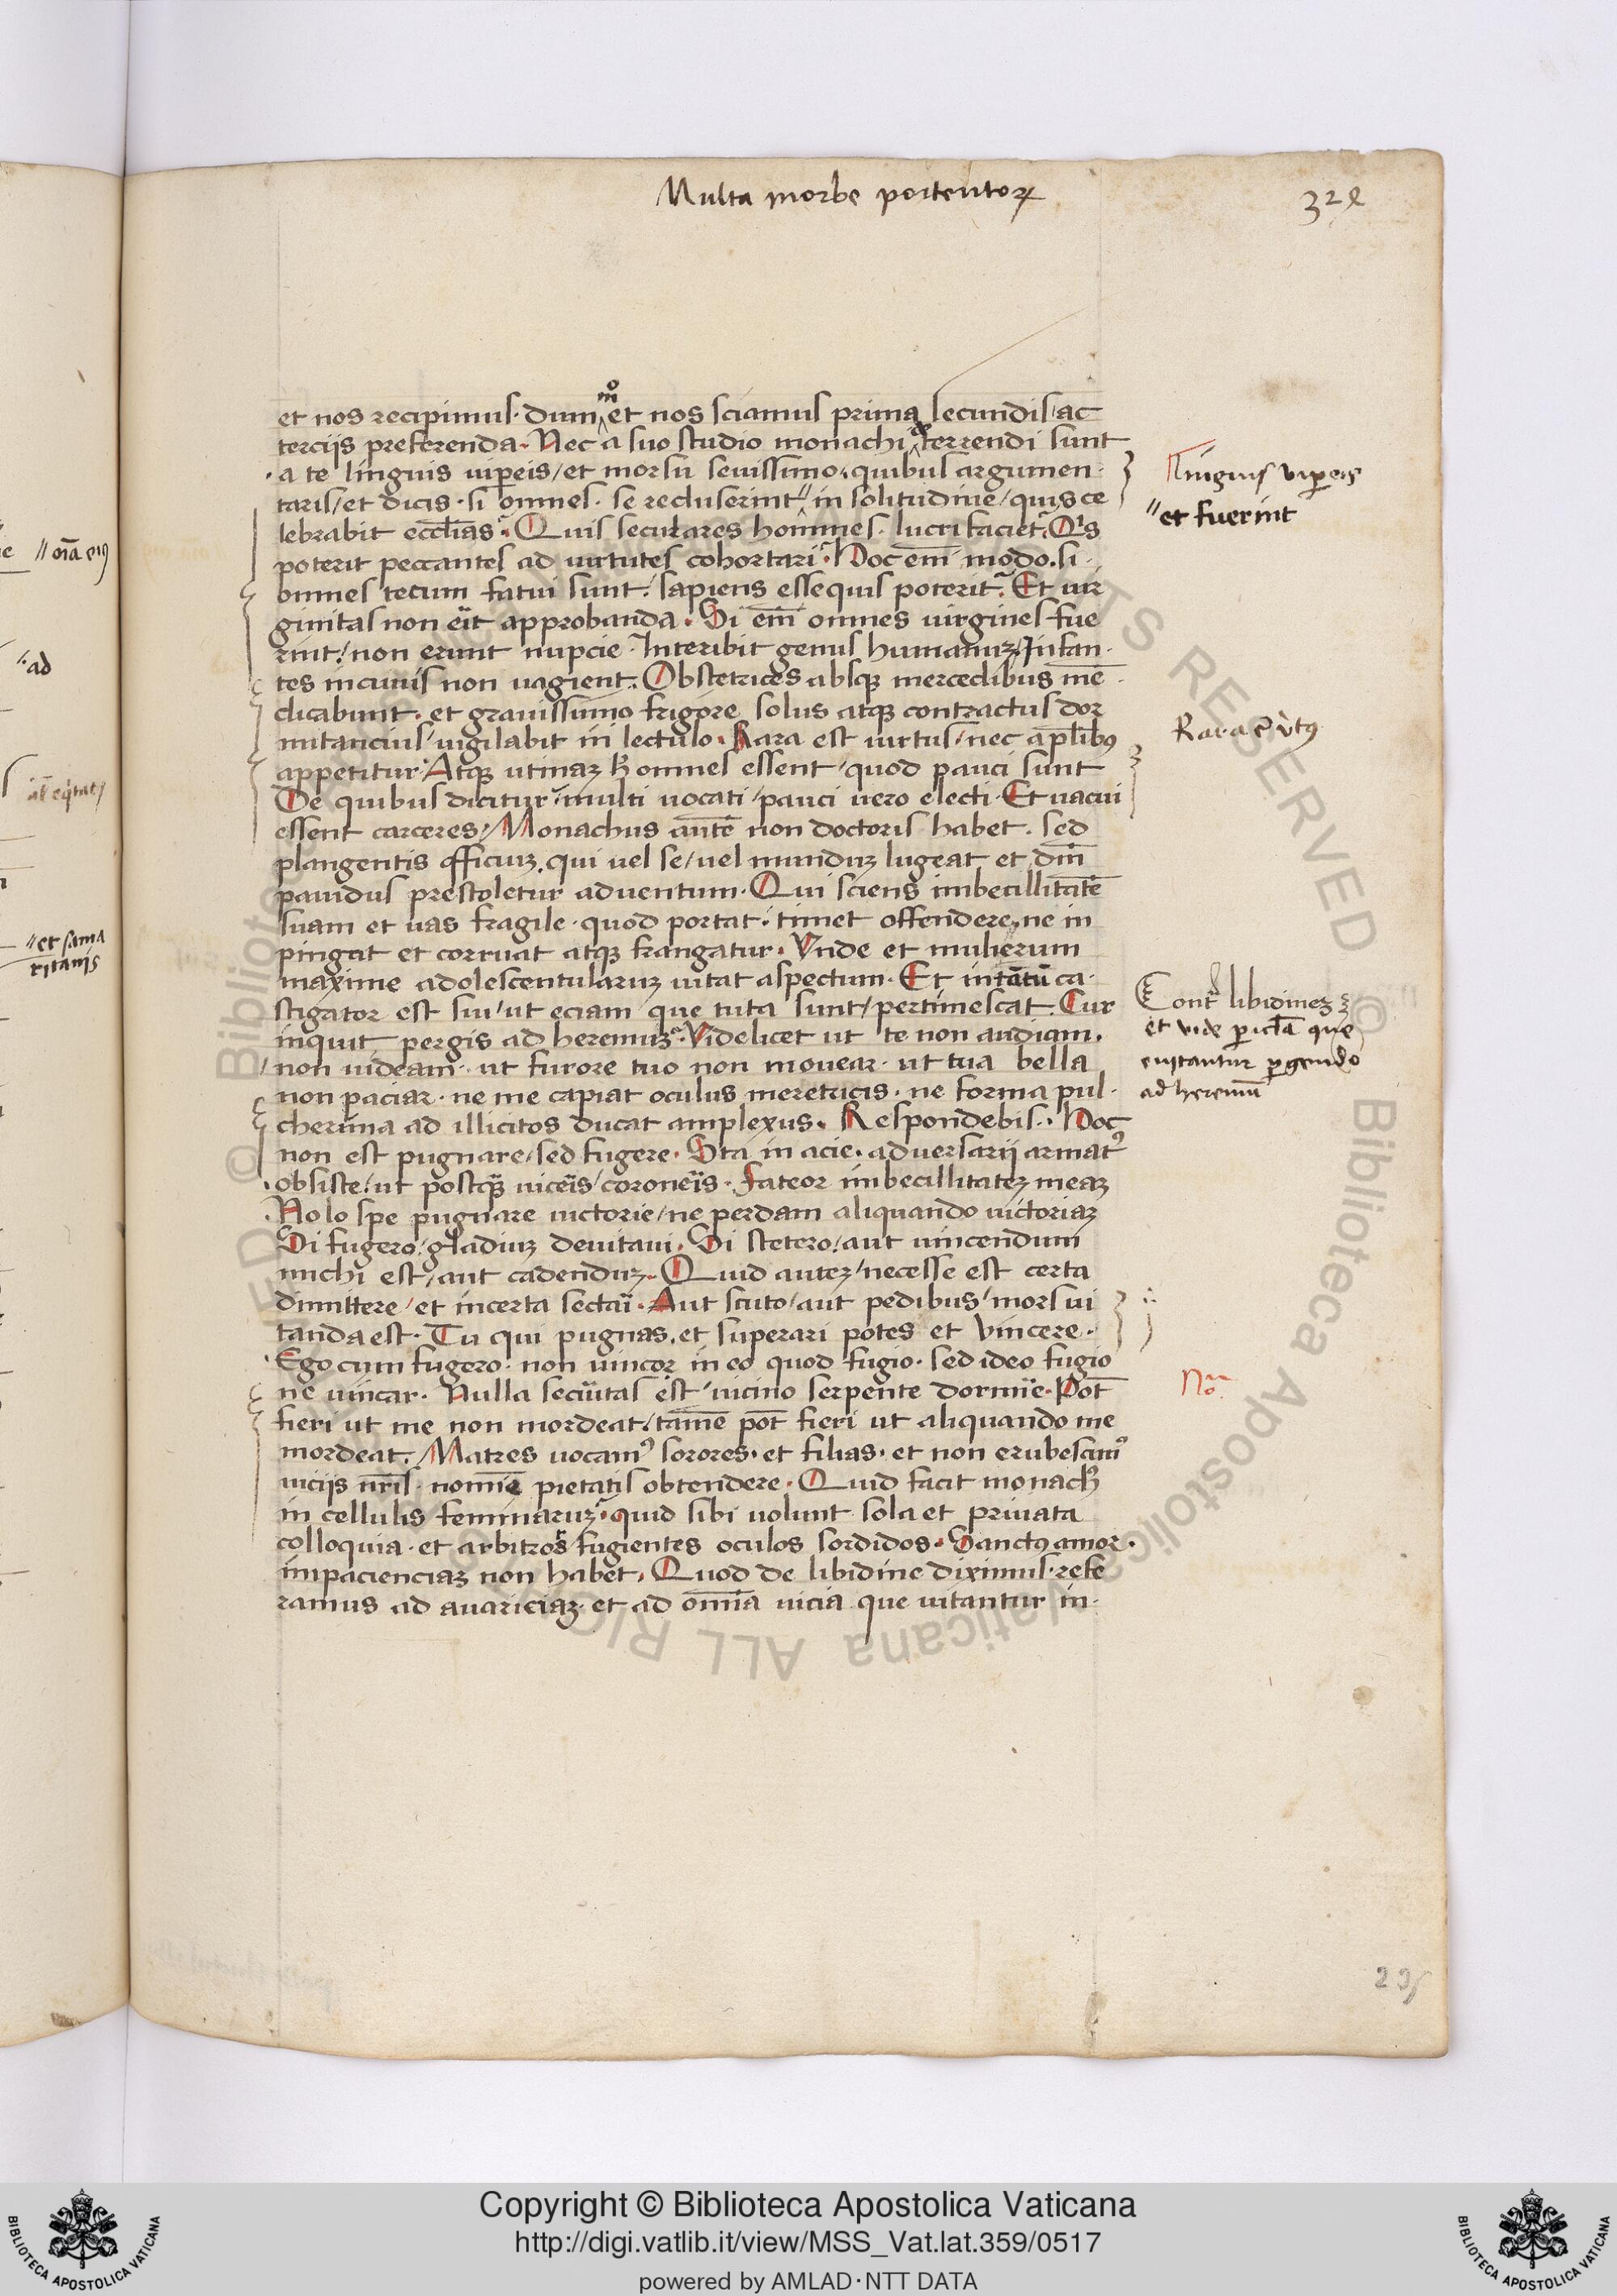 Multa morbe portentoꝝ
322
et nos recipimus · dummo et nos sciamus prima secundis / ac
terciis preferenda · Nec a suo studio monachi deterrendi sunt
a te linguis viperis / et morsu seuissimo · quibus argumen-
taris / et dicis · si omnes · se recluserint // in solitudine / quis ce
lebrabit eccłias · Quis seculares homines · lucri faciet · Qis
poterit peccantes ad uirtutes cohortari · Hoc em̄ modo · si
omnes tecum fatui sunt / sapiens esse quis poterit · Et uir
ginitas non eīt approbanda · Si em̄ omnes uirgines fue
rint / non erunt nupcie · Interibit genus humanuꝫ / Infan-
tes in cunis non uagient · Obstetrices absqꝫ mercedibus mē-
dicabunt · et grauissimo frigore solus atqꝫ contractus dor
mitancius / uigilabit in lectulo · Rara est uirtus / nec a pl̄ibꝰ
appetitur · Atqꝫ utinaꝫ h̄ omnes essent / quod pauci sunt
De quibus dicitur / multi uocati / pauci uero electi · Et uacui
essent carceres / Monachus aūtē non doctoris habet · sed
plangentis officiuꝫ · qui uel se / uel munduꝫ lugeat et dn̄i
pauidus prestoletur aduentum · Qui sciens imbecillitatē
suam et uas fragile · quod portat · timet offendere / ne in
pingat et corruat atqꝫ frangatur · Vnde et mulierum
maxime adolescentularuꝫ uitat aspectum · Et intātū ca-
stigator est sui / ut eciam que tuta sunt / pertimescat · Cur
inquit pergis ad heremuꝫ · Videlicet ut te non audiam ·
non uideam · ut furore tuo non mouear · ut tua bella
non paciar · ne me capiat oculus meretricis · ne forma pul-
cherima ad illicitos ducat amplexus · Respondebis · Hoc
non est pugnare / sed fugere · Sta in acie · aduersarij armatꝰ
obsiste / ut postqꝫ̄ uicēis / coronēis · Fateor imbecillitateꝫ meaꝫ
Nolo spe pugnare uictorie / ne perdam aliquando uictoriaꝫ
Si fugero / gladiuꝫ deuitaui · Si stetero / aut uincendum
michi est / aut cadenduꝫ · Quid auteꝫ / necesse est certa
dimittere / et incerta sectāi · Aut scuto / aut pedibus / mors ui
tanda est · Tu qui pugnas · et superari potes et vincere ·
Ego cum fugero · non uincor in eo quod fugio · sed ideo fugio
ne uincar · Nulla secūitas est / uicino serpente dormīe · Pōt
fieri ut me non mordeat / tamē pōt fieri ut aliquando me
mordeat · Matres uocamꝰ sorores · et filias · et non erubescimꝰ
uiciis nr̄is · nomīe pietatis obtendere · Quid facit monachꝰ
in cellulis feminaruꝫ · quid sibi uolunt sola et priuata
colloquia · et arbitros fugientes oculos sordidos · Sanctꝰ amor ·
impacienciaꝫ non habet · Quod de libidine diximus · refe
ramus ad auariciaꝫ · et ad omīa uicia que uitantur in-
linguis viperis
// et fuerint
Rara ē v̓tꝰ
Cont̓ libidineꝫ
et vide pericl̄a que
euitantur pergendo
ad heremū
No
// oīa eiꝰ
ad
// et sama
ritanis
Copyright © Biblioteca Apostolica Vaticana
http://digi.vatlib.it/view/MSS_Vat.lat.359/0517
powered by AMLAD·NTT DATA
BIBLIOTECA APOSTOLICA VATICANA
BIBLIOTECA APOSTOLICA VATICANA